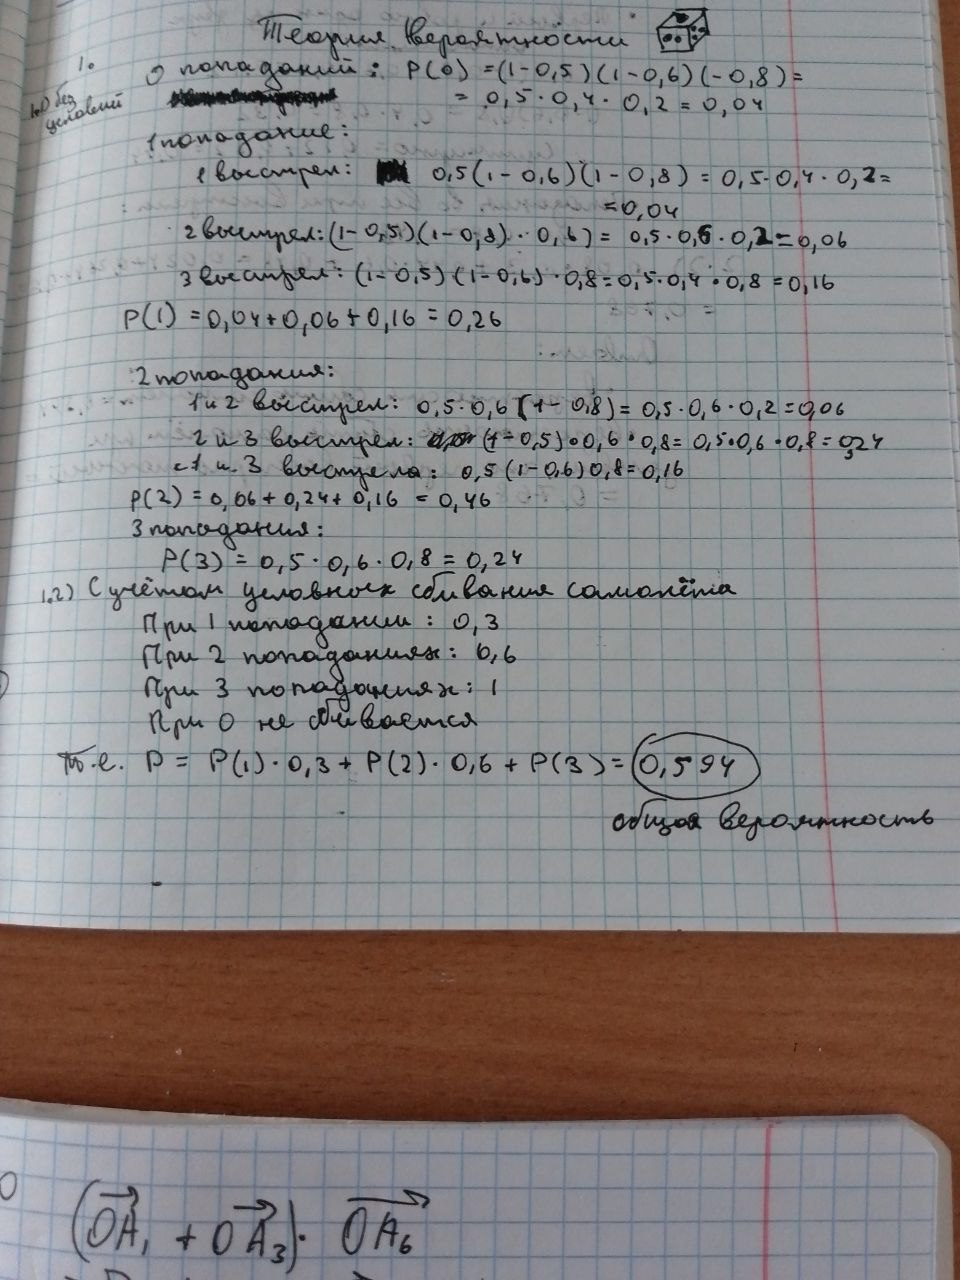 Теория вероятности
1.
0 попаданий: P(0) = (1-0,5)(1-0,6)(-0,8)=
1.1) без условий
= 0,5·0,4·0,2 = 0,04
1 попадание:
1 выстрел: 0,5(1-0,6)(1-0,8) = 0,5·0,4·0,2=
=0,04
2 выстрел: (1-0,5)(1-0,8)·0,6)= 0,5·0,6·0,2=0,06
3 выстрел: (1-0,5)(1-0,6)·0,8=0,5·0,4·0,8=0,16
P(1) =0,04+0,06+0,16=0,26
2 попадания:
1 и 2 выстрел: 0,5·0,6(1-0,8)=0,5·0,6·0,2=0,06
2 и 3 выстрел: (1-0,5)·0,6·0,8=0,5·0,6·0,8=0,24
1 и 3 выстрела: 0,5(1-0,6)0,8=0,16
P(2)=0,06+0,24+0,16=0,46
3 попадания:
P(3)=0,5·0,6·0,8=0,24
1.2) С учётом условных сбивания самолёта
При 1 попадании: 0,3
При 2 попаданиях: 0,6
При 3 попаданиях: 1
При 0 не сбивается
Т.е. P = P(1)·0,3+P(2)·0,6+P(3)=0,594
общая вероятность
(OA₁ + OA₃)· OA₆